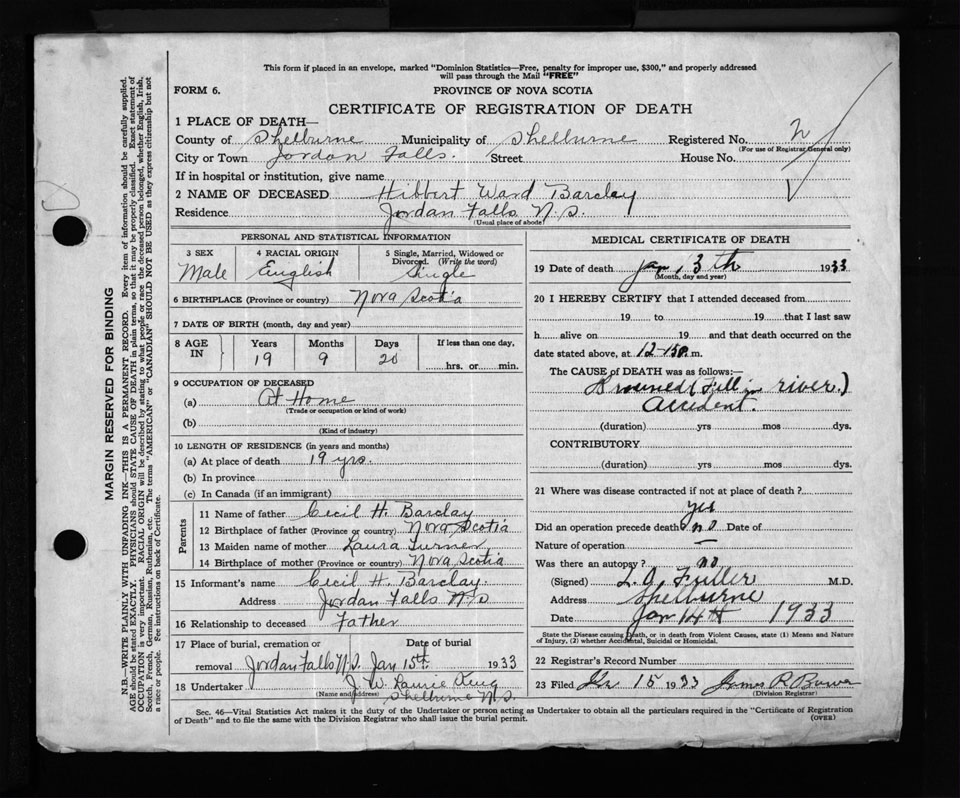 This form if placed in an envelope, marked "Dominion Statistics—Free, penalty for improper use, $300," and properly addressed
will pass through the Mail "FREE"
FORM 6.
PROVINCE OF NOVA SCOTIA
CERTIFICATE OF REGISTRATION OF DEATH
1 PLACE OF DEATH—
County of Shelburne Municipality of Shelburne Registered No. 2
(For use of Registrar General only)
City or Town Jordan Falls. Street House No.
If in hospital or institution, give name
2 NAME OF DECEASED Hibbert Ward Barclay
Residence Jordan Falls N.S.
(Usual place of abode)
PERSONAL AND STATISTICAL INFORMATION
3 SEX 4 RACIAL ORIGIN 5 Single, Married, Widowed or Divorced. (Write the word)
Male English Single
6 BIRTHPLACE (Province or country) Nova Scotia
7 DATE OF BIRTH (month, day and year)
8 AGE IN Years Months Days If less than one day,
19 9 20 hrs. or min.
9 OCCUPATION OF DECEASED
(a) At Home
(Trade or occupation or kind of work)
(b)
(Kind of industry)
10 LENGTH OF RESIDENCE (in years and months)
(a) At place of death 19 yrs.
(b) In province
(c) In Canada (if an immigrant)
Parents
11 Name of father Cecil H. Barclay
12 Birthplace of father (Province or country) Nova Scotia
13 Maiden name of mother Laura Turner
14 Birthplace of mother (Province or country) Nova Scotia
15 Informant's name Cecil H. Barclay.
Address Jordan Falls N.S
16 Relationship to deceased Father
17 Place of burial, cremation or removal Date of burial
Jordan Falls N.S. Jan 15th. 1933
18 Undertaker J. W. Laurie King
(Name and address) Shelburne N.S.
MEDICAL CERTIFICATE OF DEATH
19 Date of death Jan, 3th 1933
(Month, day and year)
20 I HEREBY CERTIFY that I attended deceased from
19 to 19 that I last saw
h alive on 19 and that death occurred on
date stated above, at 12-15 m.
The CAUSE of DEATH was as follows:—
Drowned (Fell in river.)
Accident.
(duration) yrs mos dys.
CONTRIBUTORY
(duration) yrs mos dys.
21 Where was disease contracted if not at place of death?
yes
Did an operation precede death no Date of
Nature of operation —
Was there an autopsy? no
(Signed) L.O. Fuller M.D.
Address Shelburne
Date Jan 14th 1933
State the Disease causing Death, or in death from Violent Causes, state (1) Means and Nature
of Injury, (2) whether Accidental, Suicidal or Homicidal.
22 Registrar's Record Number
23 Filed 15 1933 James R Bower
(Division Registrar)
Sec. 46—Vital Statistics Act makes it the duty of the Undertaker or person acting as Undertaker to obtain all the particulars required in the "Certificate of Registration
of Death" and to file the same with the Division Registrar who shall issue the burial permit.
(OVER)
MARGIN RESERVED FOR BINDING
N.B.—WRITE PLAINLY WITH UNFADING INK—THIS IS A PERMANENT RECORD. Every item of information should be carefully supplied.
AGE should be stated EXACTLY. PHYSICIANS should STATE CAUSE OF DEATH in plain terms, so that it may be properly classified. Exact statement of
OCCUPATION is very important. RACIAL ORIGIN will be described by stating to what people or race the deceased person belonged, whether English, Irish,
Scotch, French, German, Russian, Ruthenian, etc. The terms "AMERICAN" or "CANADIAN" SHOULD NOT BE USED as they express citizenship but not
a race or people. See instructions on back of Certificate.